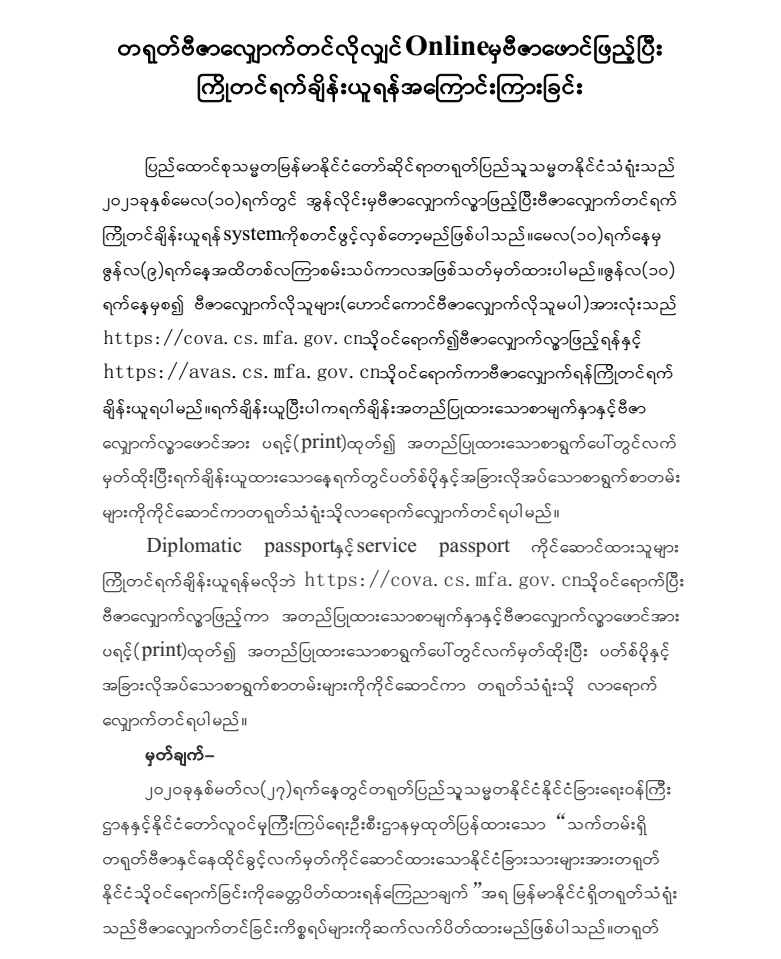 တရုတ်ဗီဇာလျှောက်တင်လိုလျှင် Onlineမှဗီဇာဖောင်ဖြည့်ပြီး
ကြိုတင်ရက်ချိန်းယူရန်အကြောင်းကြားခြင်း
ပြည်ထောင်စုသမ္မတမြန်မာနိုင်ငံတော်ဆိုင်ရာတရုတ်ပြည်သူ့သမ္မတနိုင်ငံသံရုံးသည်
၂၀၂၁ခုနှစ်မေလ(၁၀)ရက်တွင် အွန်လိုင်းမှဗီဇာလျှောက်လွှာဖြည့်ပြီးဗီဇာလျှောက်တင်ရက်
ကြိုတင်ချိန်းယူရန်systemကိုစတင်ဖွင့်လှစ်တော့မည်ဖြစ်ပါသည်။မေလ(၁၀)ရက်နေ့မှ
ဇွန်လ(၉)ရက်နေ့အထိတစ်လကြာစမ်းသပ်ကာလအဖြစ်သတ်မှတ်ထားပါမည်။ဇွန်လ(၁၀)
ရက်နေ့မှစ၍ ဗီဇာလျှောက်လိုသူများ(ဟောင်ကောင်ဗီဇာလျှောက်လိုသူမပါ)အားလုံးသည်
https://cova.cs.mfa.gov.cnသို့ဝင်ရောက်၍ဗီဇာလျှောက်လွှာဖြည့်ရန်နှင့်
https://avas.cs.mfa.gov.cnသို့ဝင်ရောက်ကာဗီဇာလျှောက်ရန်ကြိုတင်ရက်
ချိန်းယူရပါမည်။ရက်ချိန်းယူပြီးပါကရက်ချိန်းအတည်ပြုထားသောစာမျက်နှာနှင့်ဗီဇာ
လျှောက်လွှာဖောင်အား ပရင့်(print)ထုတ်၍ အတည်ပြုထားသောစာရွက်ပေါ်တွင်လက်
မှတ်ထိုးပြီးရက်ချိန်းယူထားသောနေ့ရက်တွင်ပတ်စ်ပို့နှင့်အခြားလိုအပ်သောစာရွက်စာတမ်း
များကိုကိုင်ဆောင်ကာတရုတ်သံရုံးသို့လာရောက်လျှောက်တင်ရပါမည်။
Diplomatic passportနှင့်service passport ကိုင်ဆောင်ထားသူများ
ကြိုတင်ရက်ချိန်းယူရန်မလိုဘဲ https://cova.cs.mfa.gov.cnသို့ဝင်ရောက်ပြီး
ဗီဇာလျှောက်လွှာဖြည့်ကာ အတည်ပြုထားသောစာမျက်နှာနှင့်ဗီဇာလျှောက်လွှာဖောင်အား
ပရင့်(print)ထုတ်၍ အတည်ပြုထားသောစာရွက်ပေါ်တွင်လက်မှတ်ထိုးပြီး ပတ်စ်ပို့နှင့်
အခြားလိုအပ်သောစာရွက်စာတမ်းများကိုကိုင်ဆောင်ကာ တရုတ်သံရုံးသို့ လာရောက်
လျှောက်တင်ရပါမည်။
မှတ်ချက်–
၂၀၂၀ခုနှစ်မတ်လ(၂၇)ရက်နေ့တွင်တရုတ်ပြည်သူ့သမ္မတနိုင်ငံနိုင်ငံခြားရေးဝန်ကြီး
ဌာနနှင့်နိုင်ငံတော်လူဝင်မှုကြီးကြပ်ရေးဦးစီးဌာနမှထုတ်ပြန်ထားသော “သက်တမ်းရှိ
တရုတ်ဗီဇာနှင်နေထိုင်ခွင့်လက်မှတ်ကိုင်ဆောင်ထားသောနိုင်ငံခြားသားများအားတရုတ်
နိုင်ငံသို့ဝင်ရောက်ခြင်းကိုခေတ္တပိတ်ထားရန်ကြေညာချက် ”အရ မြန်မာနိုင်ငံရှိတရုတ်သံရုံး
သည်ဗီဇာလျှောက်တင်ခြင်းကိစ္စရပ်များကိုဆက်လက်ပိတ်ထားမည်ဖြစ်ပါသည်။တရုတ်